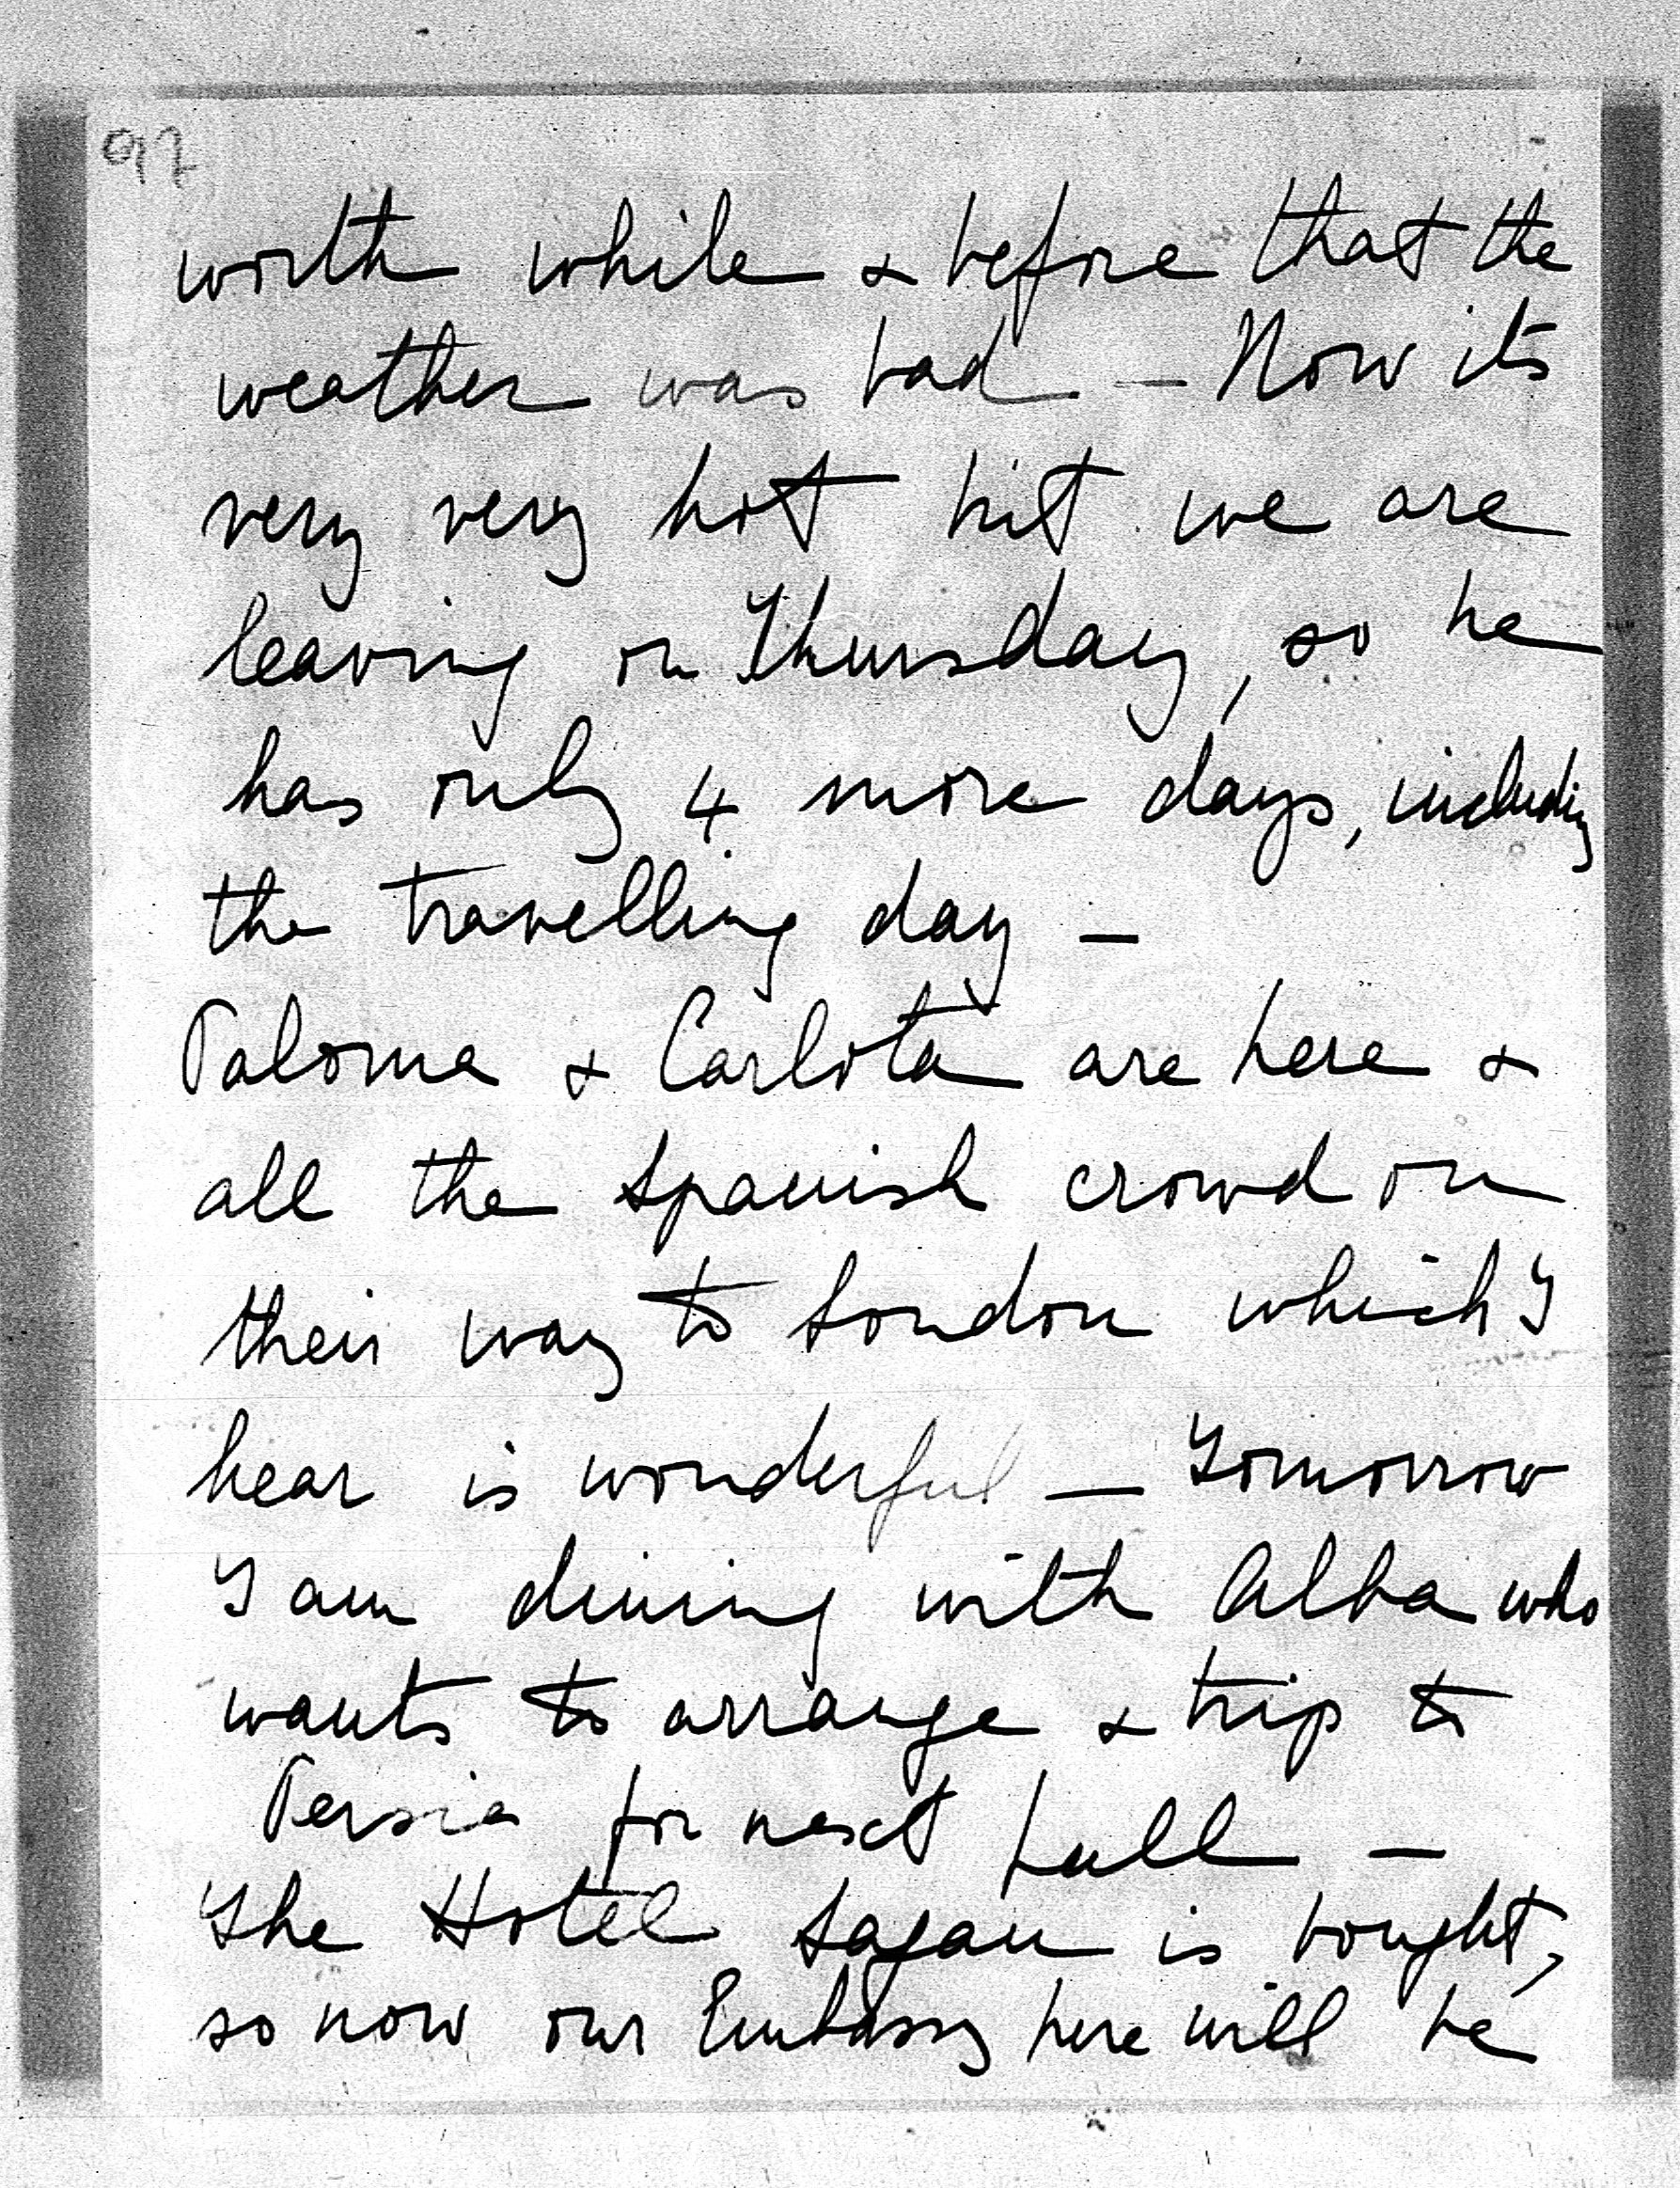 97
worth while & before that the
weather was bad - Now its
very very hot but we are
leaving on Thursday, so he
has only 4 more days, including
the travelling day -
Paloma & Carlota are here &
all the Spanish crowd on
their way to London which I
hear is wonderful - Tomorrow
I am dining with Alba who
wants to arrange a trip to
Persia for next fall -
The Hotel Sagan is bought,
so now our Embassy here will be